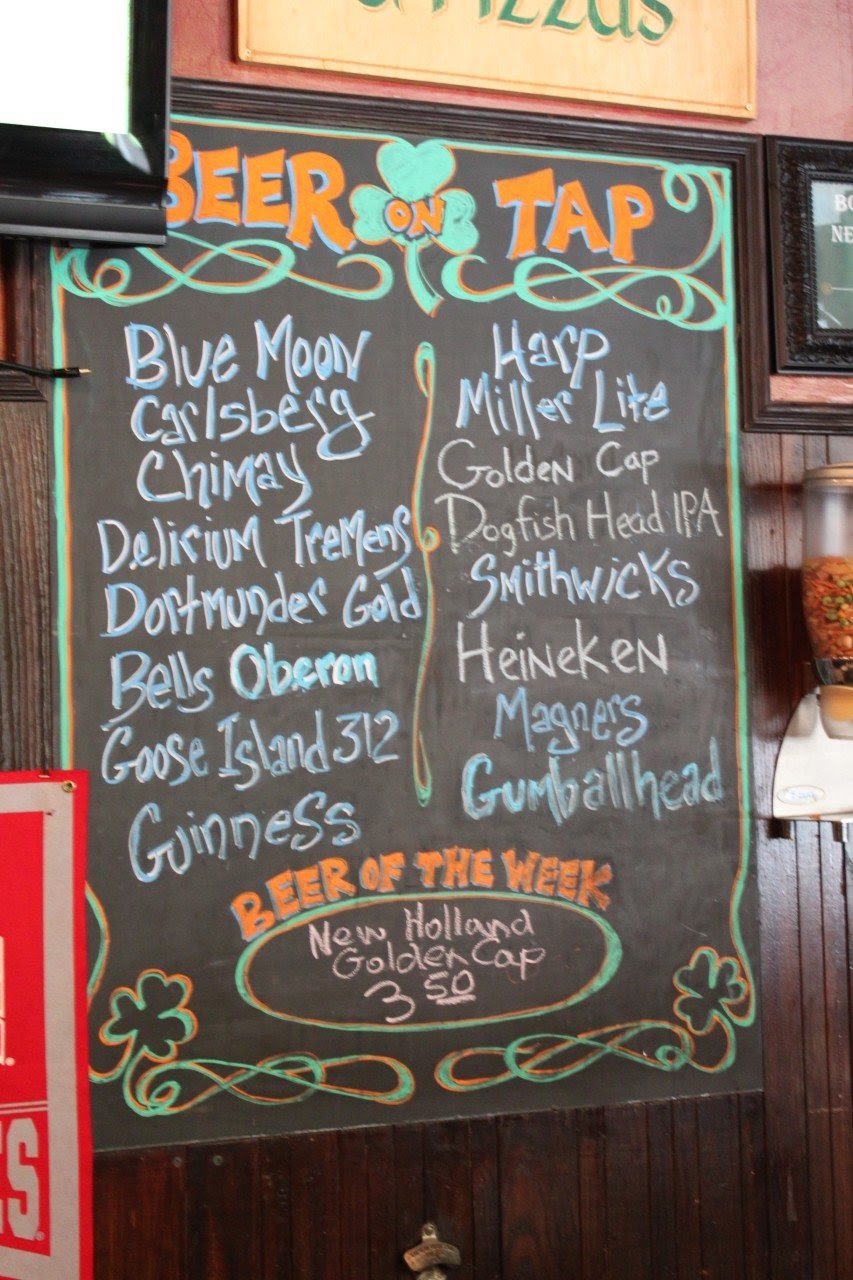 & Pizzas
BEER ON TAP
Blue Moon
Carlsberg
Chimay
Delirium Tremens
Dortmunder Gold
Bells Oberon
Goose Island 312
Guinness
Harp
Miller Lite
Golden Cap
Dogfish Head IPA
Smithwicks
Heineken
Magners
Gumballhead
BEER OF THE WEEK
New Holland
Golden Cap
3 50